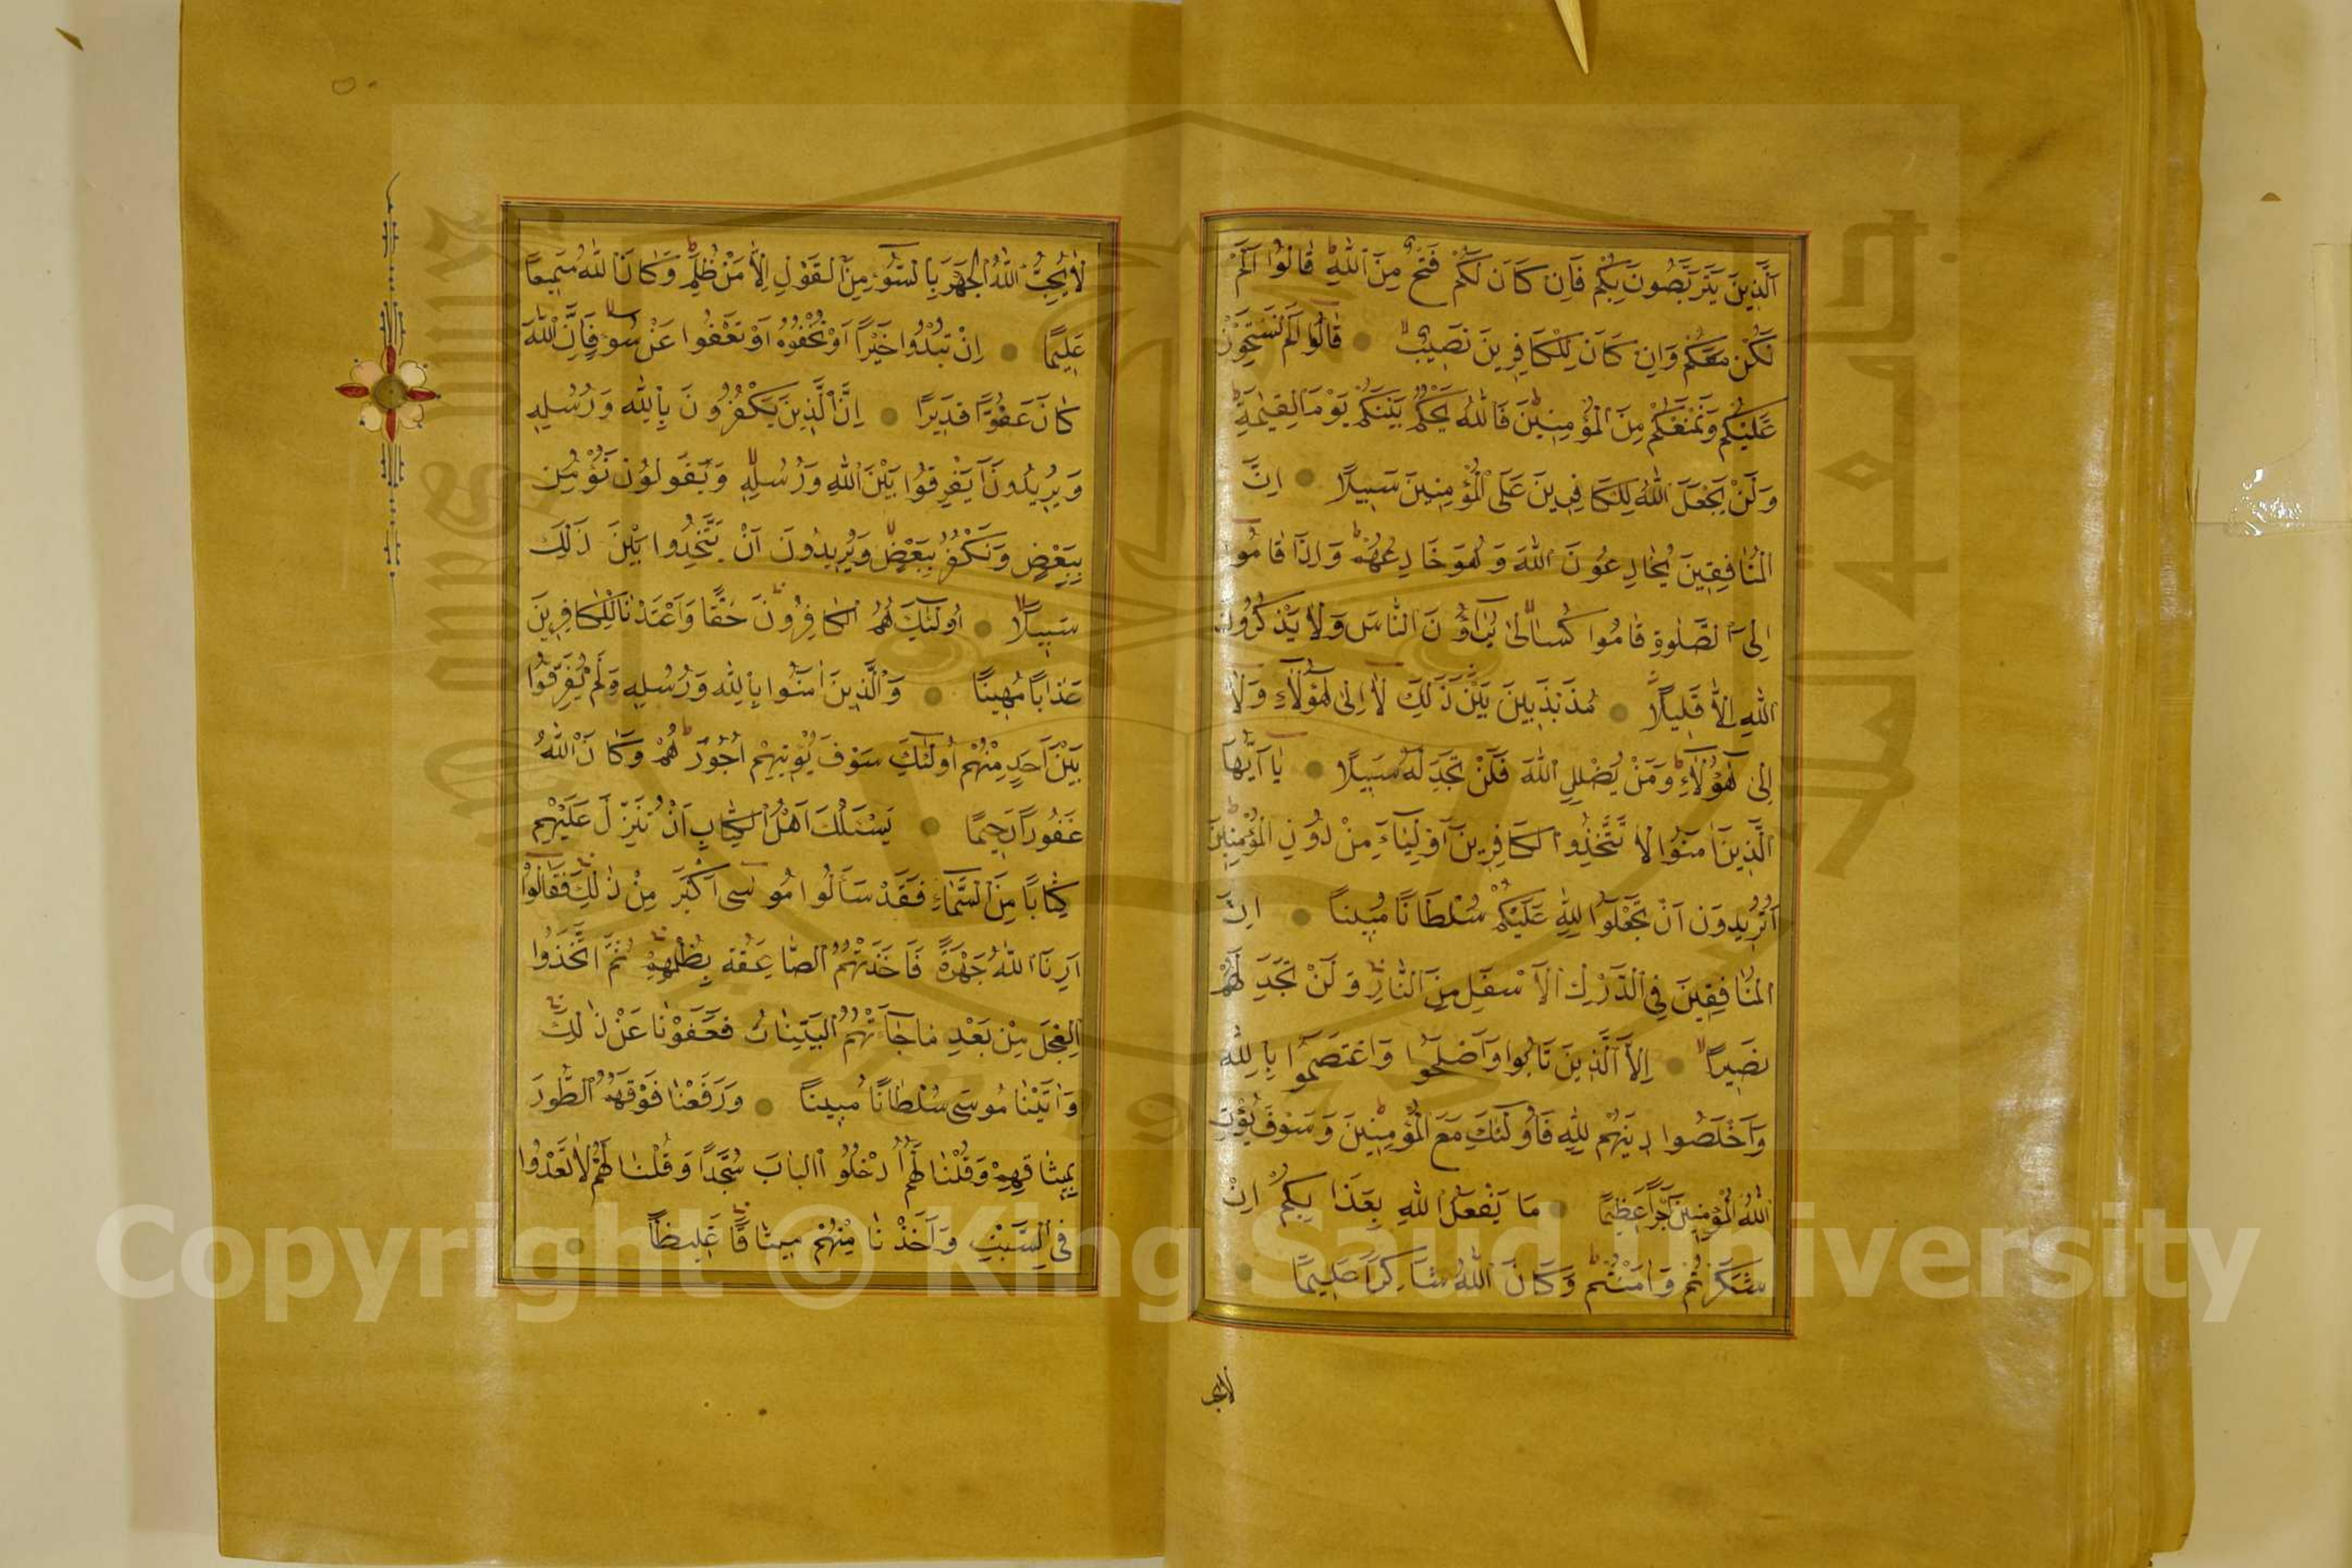 اَلَّذِينَ يَتَرَبَّصُونَ بِكُمْ فَاِن كَانَ لَكُمْ فَتْحٌ مِنَ اللّٰهِ قَالُوا اَلَمْ
نَكُنْ مَعَكُمْ وَاِن كَانَ لِلْكَافِرِينَ نَصِيبٌ قَالُوا اَلَمْ نَسْتَحْوِذْ
عَلَيْكُمْ وَنَمْنَعْكُمْ مِنَ الْمُؤْمِنِينَ فَاللّٰهُ يَحْكُمُ بَيْنَكُمْ يَوْمَ الْقِيٰمَةِ
وَلَنْ يَجْعَلَ اللّٰهُ لِلْكَافِرِينَ عَلَى الْمُؤْمِنِينَ سَبِيلًا اِنَّ
الْمُنَافِقِينَ يُخَادِعُونَ اللّٰهَ وَهُوَ خَادِعُهُمْ وَاِذَا قَامُوا
اِلَى الصَّلٰوةِ قَامُوا كُسَالٰى يُرَاؤُنَ النَّاسَ وَلَا يَذْكُرُونَ
اللّٰهَ اِلَّا قَلِيلًا مُذَبْذَبِينَ بَيْنَ ذَلِكَ لَا اِلٰى هٰؤُلَاءِ وَلَا
اِلٰى هٰؤُلَاءِ وَمَنْ يُضْلِلِ اللّٰهُ فَلَنْ تَجِدَ لَهُ سَبِيلًا يَا اَيُّهَا
الَّذِينَ اٰمَنُوا لَا تَتَّخِذُوا الْكَافِرِينَ اَوْلِيَاءَ مِنْ دُونِ الْمُؤْمِنِينَ
اَتُرِيدُونَ اَنْ تَجْعَلُوا لِلّٰهِ عَلَيْكُمْ سُلْطَانًا مُبِينًا اِنَّ
الْمُنَافِقِينَ فِي الدَّرْكِ الْاَسْفَلِ مِنَ النَّارِ وَلَنْ تَجِدَ لَهُمْ
نَصِيرًا اِلَّا الَّذِينَ تَابُوا وَاَصْلَحُوا وَاعْتَصَمُوا بِاللّٰهِ
وَاَخْلَصُوا دِينَهُمْ لِلّٰهِ فَاُولٰئِكَ مَعَ الْمُؤْمِنِينَ وَسَوْفَ يُؤْتِ
اللّٰهُ الْمُؤْمِنِينَ اَجْرًا عَظِيمًا مَا يَفْعَلُ اللّٰهُ بِعَذَابِكُمْ اِنْ
شَكَرْتُمْ وَاٰمَنْتُمْ وَكَانَ اللّٰهُ شَاكِرًا عَلِيمًا
لا يحب
لَا يُحِبُّ اللّٰهُ الْجَهْرَ بِالسُّوءِ مِنَ الْقَوْلِ اِلَّا مَنْ ظُلِمَ وَكَانَ اللّٰهُ سَمِيعًا
عَلِيمًا اِنْ تُبْدُوا خَيْرًا اَوْ تُخْفُوهُ اَوْ تَعْفُوا عَنْ سُوءٍ فَاِنَّ اللّٰهَ
كَانَ عَفُوًّا قَدِيرًا اِنَّ الَّذِينَ يَكْفُرُونَ بِاللّٰهِ وَرُسُلِهِ
وَيُرِيدُونَ اَنْ يُفَرِّقُوا بَيْنَ اللّٰهِ وَرُسُلِهِ وَيَقُولُونَ نُؤْمِنُ
بِبَعْضٍ وَنَكْفُرُ بِبَعْضٍ وَيُرِيدُونَ اَنْ يَتَّخِذُوا بَيْنَ ذٰلِكَ
سَبِيلًا اُولٰئِكَ هُمُ الْكَافِرُونَ حَقًّا وَاَعْتَدْنَا لِلْكَافِرِينَ
عَذَابًا مُهِينًا وَالَّذِينَ اٰمَنُوا بِاللّٰهِ وَرُسُلِهِ وَلَمْ يُفَرِّقُوا
بَيْنَ اَحَدٍ مِنْهُمْ اُولٰئِكَ سَوْفَ يُؤْتِيهِمْ اُجُورَهُمْ وَكَانَ اللّٰهُ
غَفُورًا رَحِيمًا يَسْئَلُكَ اَهْلُ الْكِتَابِ اَنْ تُنَزِّلَ عَلَيْهِمْ
كِتَابًا مِنَ السَّمَاءِ فَقَدْ سَأَلُوا مُوسٰى اَكْبَرَ مِنْ ذٰلِكَ فَقَالُوا
اَرِنَا اللّٰهَ جَهْرَةً فَاَخَذَتْهُمُ الصَّاعِقَةُ بِظُلْمِهِمْ ثُمَّ اتَّخَذُوا
الْعِجْلَ مِنْ بَعْدِ مَا جَاءَتْهُمُ الْبَيِّنَاتُ فَعَفَوْنَا عَنْ ذٰلِكَ
وَاٰتَيْنَا مُوسَى سُلْطَانًا مُبِينًا وَرَفَعْنَا فَوْقَهُمُ الطُّورَ
بِمِيثَاقِهِمْ وَقُلْنَا لَهُمُ ادْخُلُوا الْبَابَ سُجَّدًا وَقُلْنَا لَهُمْ لَا تَعْدُوا
فِي السَّبْتِ وَاَخَذْنَا مِنْهُمْ مِيثَاقًا غَلِيظًا
Copyright © King Saud University